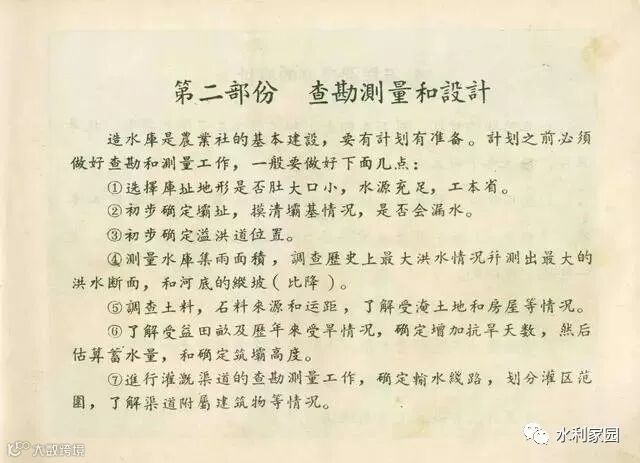 第二部份　查勘測量和設計
造水庫是農業社的基本建設，要有計划有准备。計划之前必須
做好查勘和測量工作，一般要做好下面几点：
①选擇库址地形是否肚大口小，水源充足，工本省。
②初步确定壩址，摸清壩基情况，是否会漏水。
③初步确定溢洪道位置。
④測量水库集雨面積，調查歷史上最大洪水情况并測出最大的
洪水断面，和河底的縱坡（比降）。
⑤調查土料，石料來源和运距，了解受淹土地和房屋等情况。
⑥了解受益田畝及歷年來受旱情况，确定增加抗旱天数，然后
估算蓄水量，和确定筑壩高度。
⑦進行灌溉渠道的查勘測量工作，确定輸水綫路，划分灌区范
圍，了解渠道附屬建筑物等情况。
大数跨境
水利家园